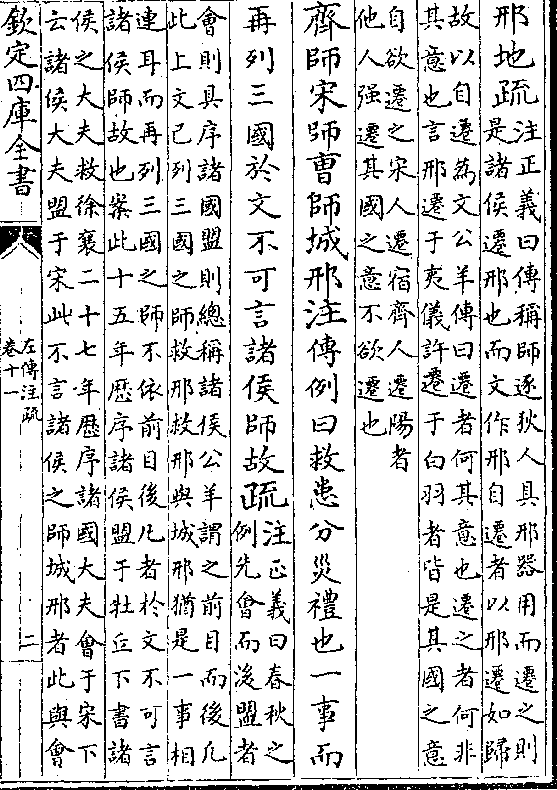 邢地疏注正義曰傳稱師逐狄人具邢器用而遷之則
是諸侯遷邢也而文作邢自遷者以邢遷如歸
故以自遷為文公羊傳曰遷者何其意也遷之者何非
其意也言邢遷于夷儀許遷于白羽者皆是其國之意
自欲遷之宋人遷宿齊人遷陽者
他人强遷其國之意不欲遷也
齊師宋師曹師城邢注傳例曰救患分災禮也一事而
再列三國於文不可言諸侯師故疏注正義曰春秋之
例先會而後盟者
會則具序諸國盟則總稱諸侯公羊謂之前目而後凡
此上文已列三國之師救邢救邢與城邢猶是一事相
連耳而再列三國之師不依前目後凡者於文不可言
諸侯師故也案此十五年歷序諸侯盟于牡丘下書諸
侯之大夫救徐襄二十七年歷序諸國大夫會于宋下
云諸侯大夫盟于宋此不言諸侯之師城邢者此與會
欽定四庫全書
左傳注疏
卷十一
二